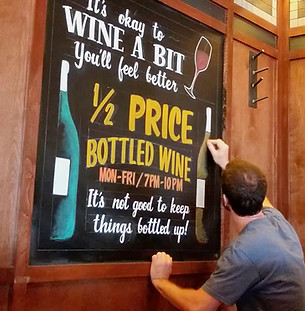 It's okay to
WINE A BIT
You'll feel better
1/2 PRICE
BOTTLED WINE
MON-FRI/7PM-10PM
It's not good to keep
things bottled up!